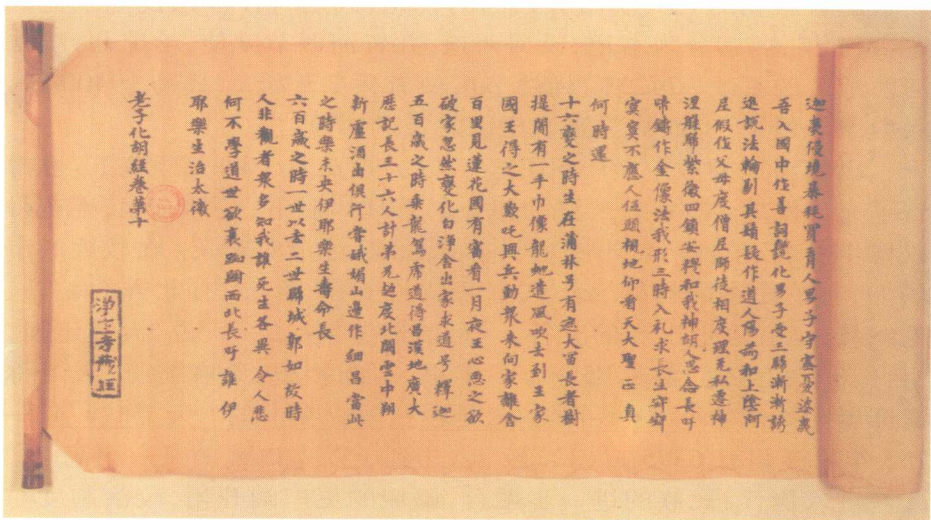 迦夷優境暴耗買育人男子守塞憂婆夷
吾入國中作善詞說化男子受三歸漸漸誘
進說法輪剔其鬚髮作道人陽為和上陰阿
尼假作父母度僧尼歸後相度理无私遷神
涅槃歸紫微四鎮安穩和我神胡人思念長吁
啼鑄作金像法我形三時入礼求長生寂寂
寞寞不應人伍頭視地仰看天大聖正真
何時還
十六變之時生在蒲林号有遮大富長者樹
提閣有一手巾像龍虵遣風吹去到王家
國王得之大歎吒興兵動眾來向家離舍
百里見蓮花國有審看一月夜王心惡之欲
破家忽然變化白淨舍出家求道号釋迦
五百歲之時乘龍駕虎道得昌漢地廣大
歷記長三十六人計弟兄過度北關雲中翔
新盧酒出俱行嘗峨嵋山邊作細昌當此
之時樂未央伊耶樂生壽命長
六百歲之時一世以去二世歸城郭如故時
人非觀者眾多知我誰死生各異令人悲
何不學道世欲衰踟躕西北長吁誰伊
耶樂生治太微
老子化胡經卷第十
淨土寺藏經